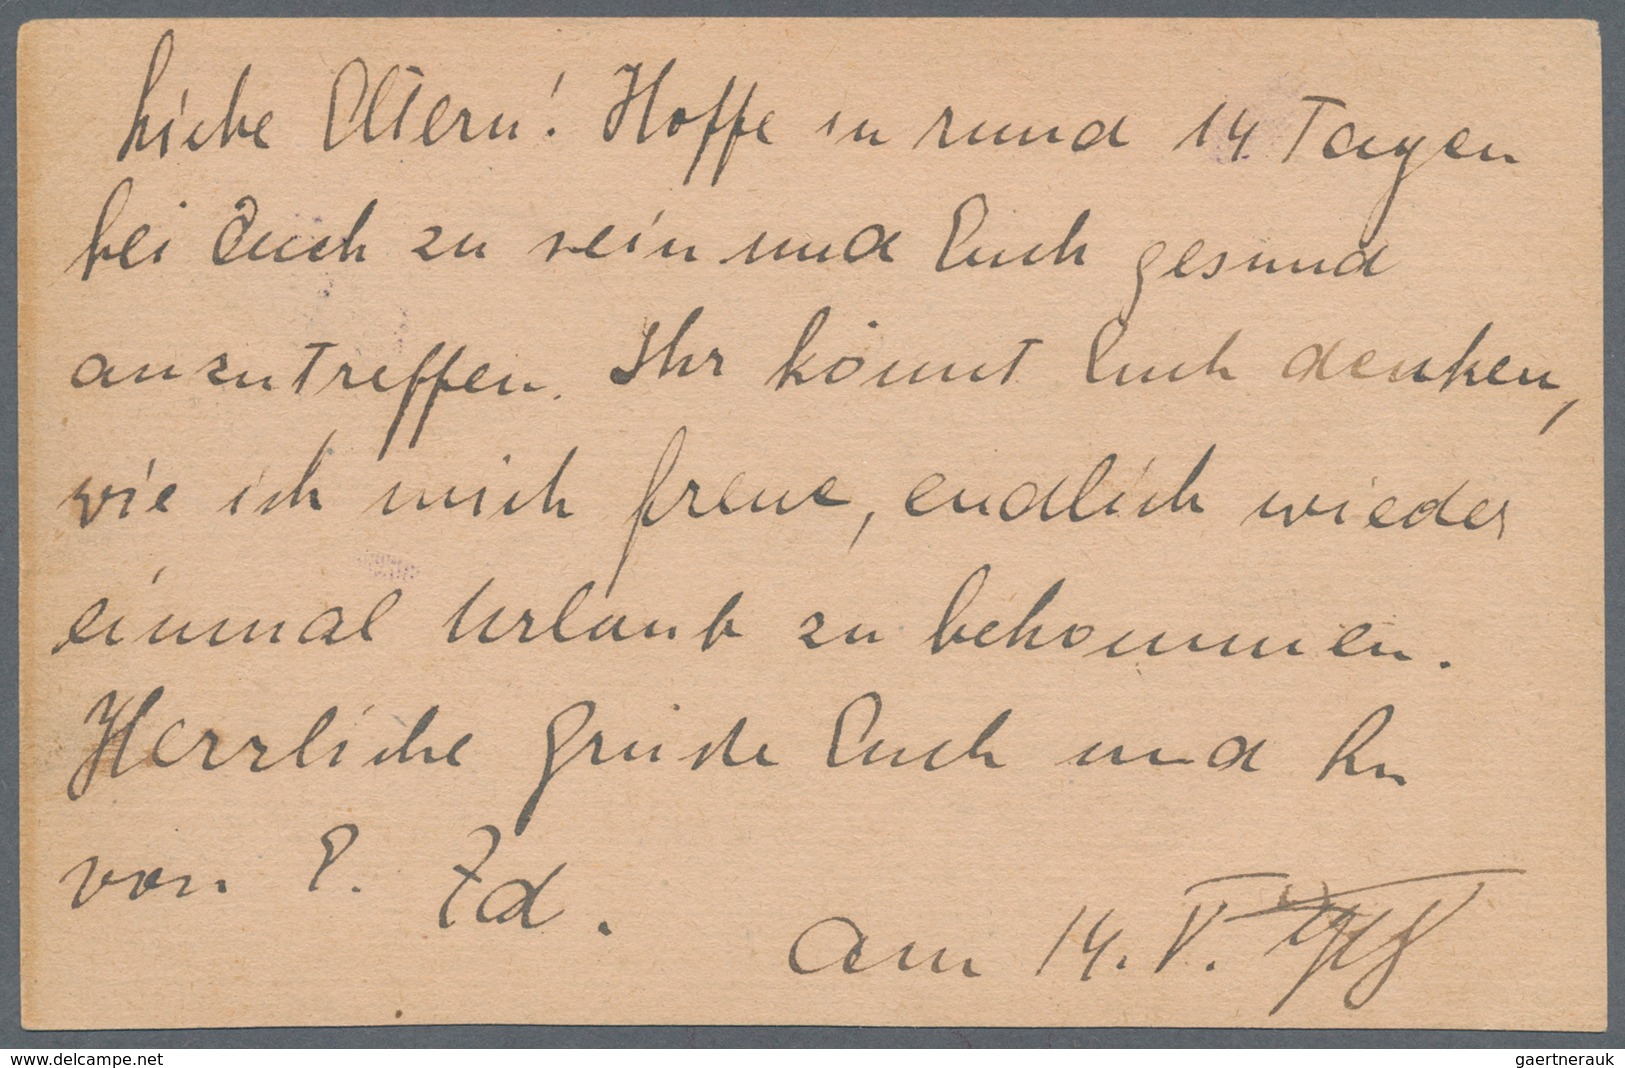 Liebe Eltern! Hoffe in rund 14 Tagen
bei Euch zu sein und Euch gesund
anzutreffen. Ihr könnt Euch denken,
wie ich mich freue, endlich wieder
einmal Urlaub zu bekommen.
Herrliche Grüsse Euch und
von E. Zd.
am 14. V. 1918
delcampe.net
gaertnerauk